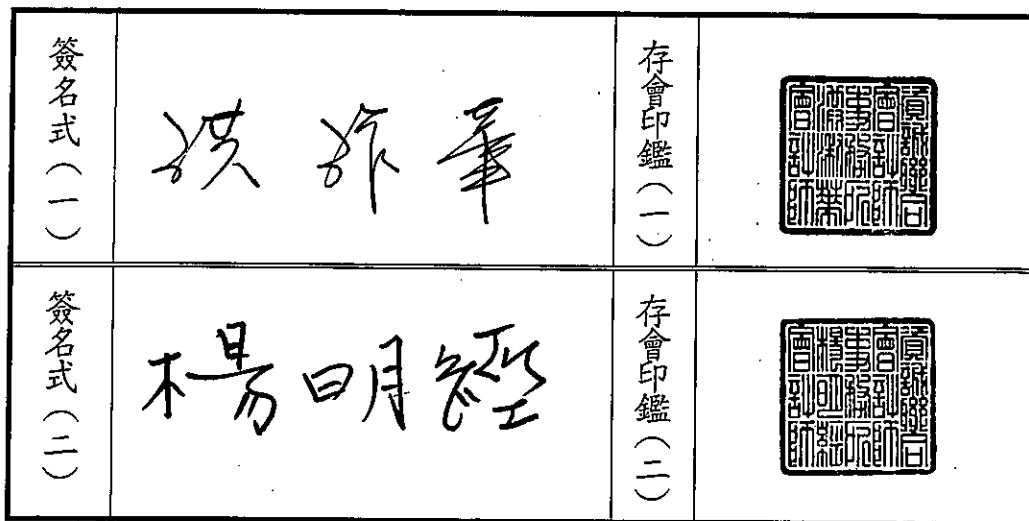 簽名式（一）
洪淑華
存會印鑑（一）
資誠聯合
會計師
事務所
洪淑華
會計師
簽名式（二）
楊明經
存會印鑑（二）
資誠聯合
會計師
事務所
楊明經
會計師